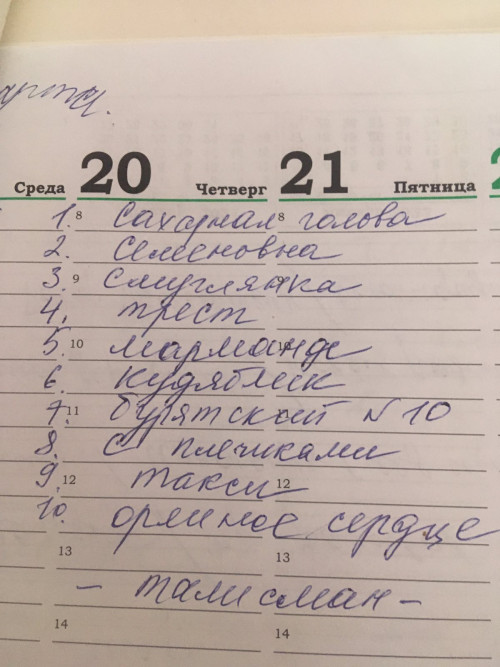 Среда 20 Четверг 21 Пятница 2
1. 8 Сахарная 8 голова
2. Семеновна
3. 9 Смуглянка
4. трест
5. 10 марманде 10
6. кудяблик
7. 11 бурятский N 10
8. с плечиками
9. 12 такси 12
10. орлиное сердце
13 13
- талисман -
14 14